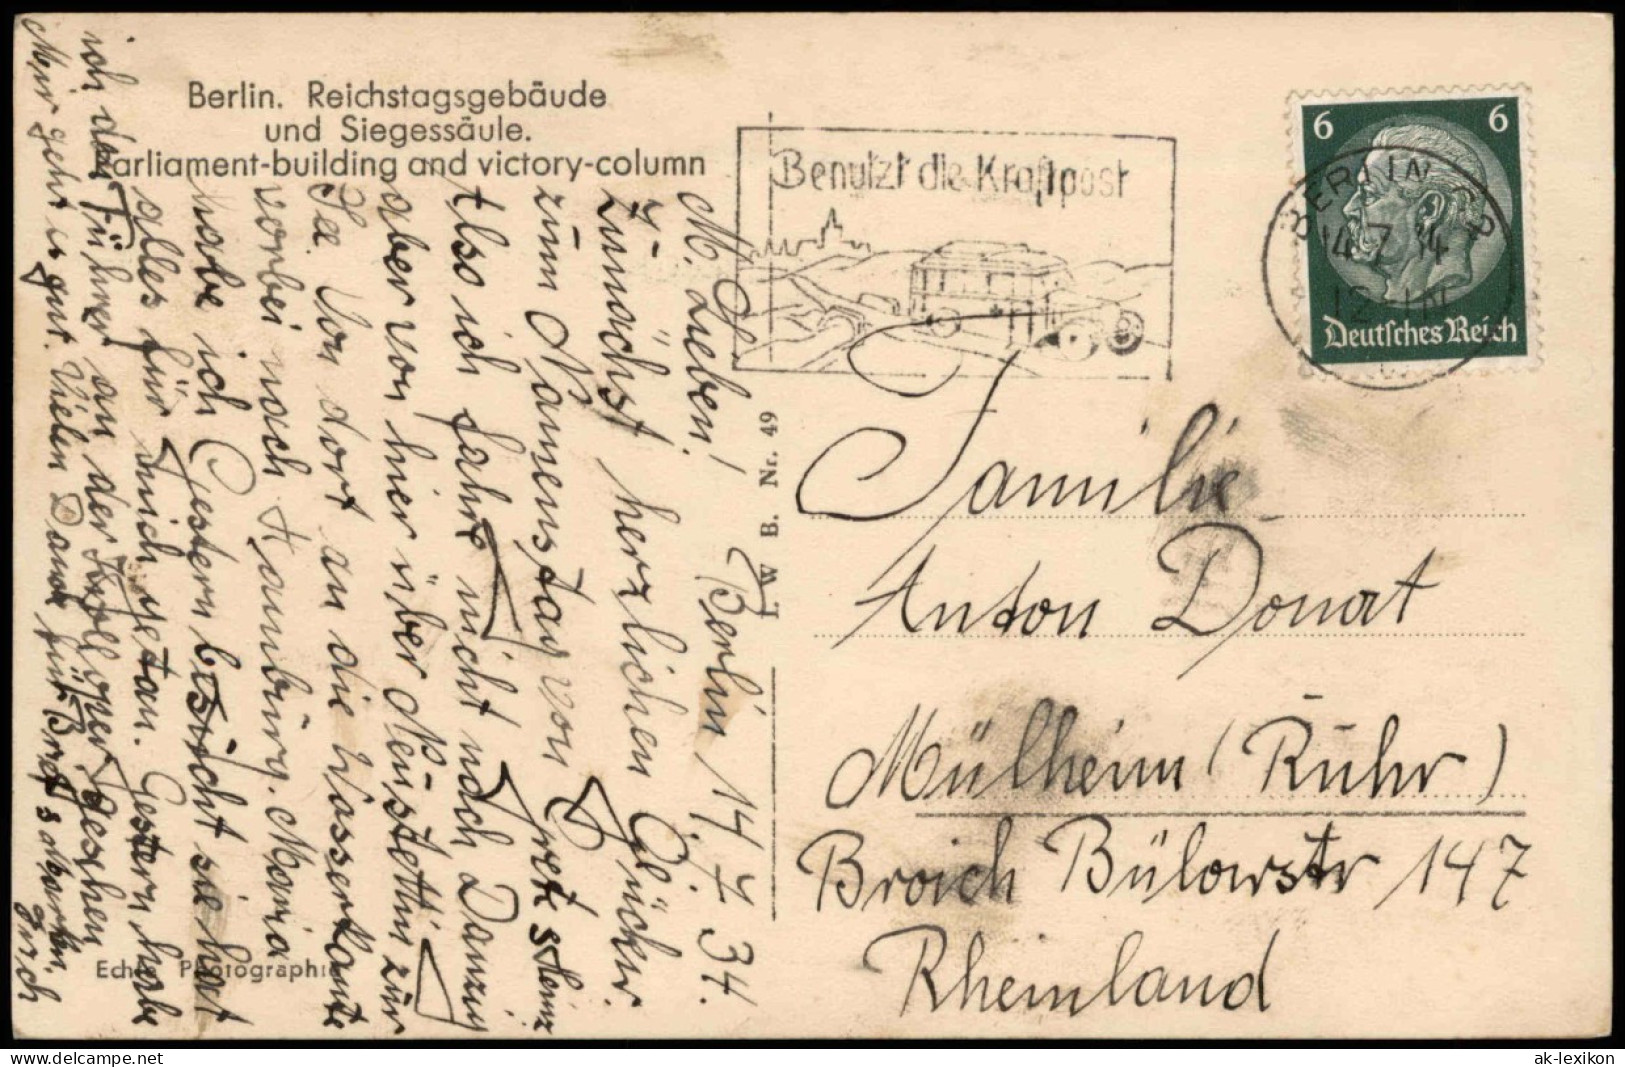 Berlin. Reichstagsgebäude
und Siegessäule.
arliament-building and victory-column
Benutzt die Kraftpost
6 6
Deutsches Reich
BERLIN
14.7.34
I W B. Nr. 49
Familie
Anton Donat
Mülheim (Ruhr)
Broich Bülowstr 147
Rheinland
Berlin 14 7 34.
M. Lieben!
Zunächst herzlichen Glückw.
zum Namenstag von
Also ich fahre nicht nach Danzig
aber von hier über Neustettin zur
See. Von dort an die Wasserkante
vorbei nach Hamburg. Maria
habe ich Gestern besucht sie hat
alles für mich getan. Gestern habe
ich den Führer an der Krolloper gesehen
Mir geht es gut. Vielen Dank für Brief
Echte Photographie
ak-lexikon
https://www.delcampe.net